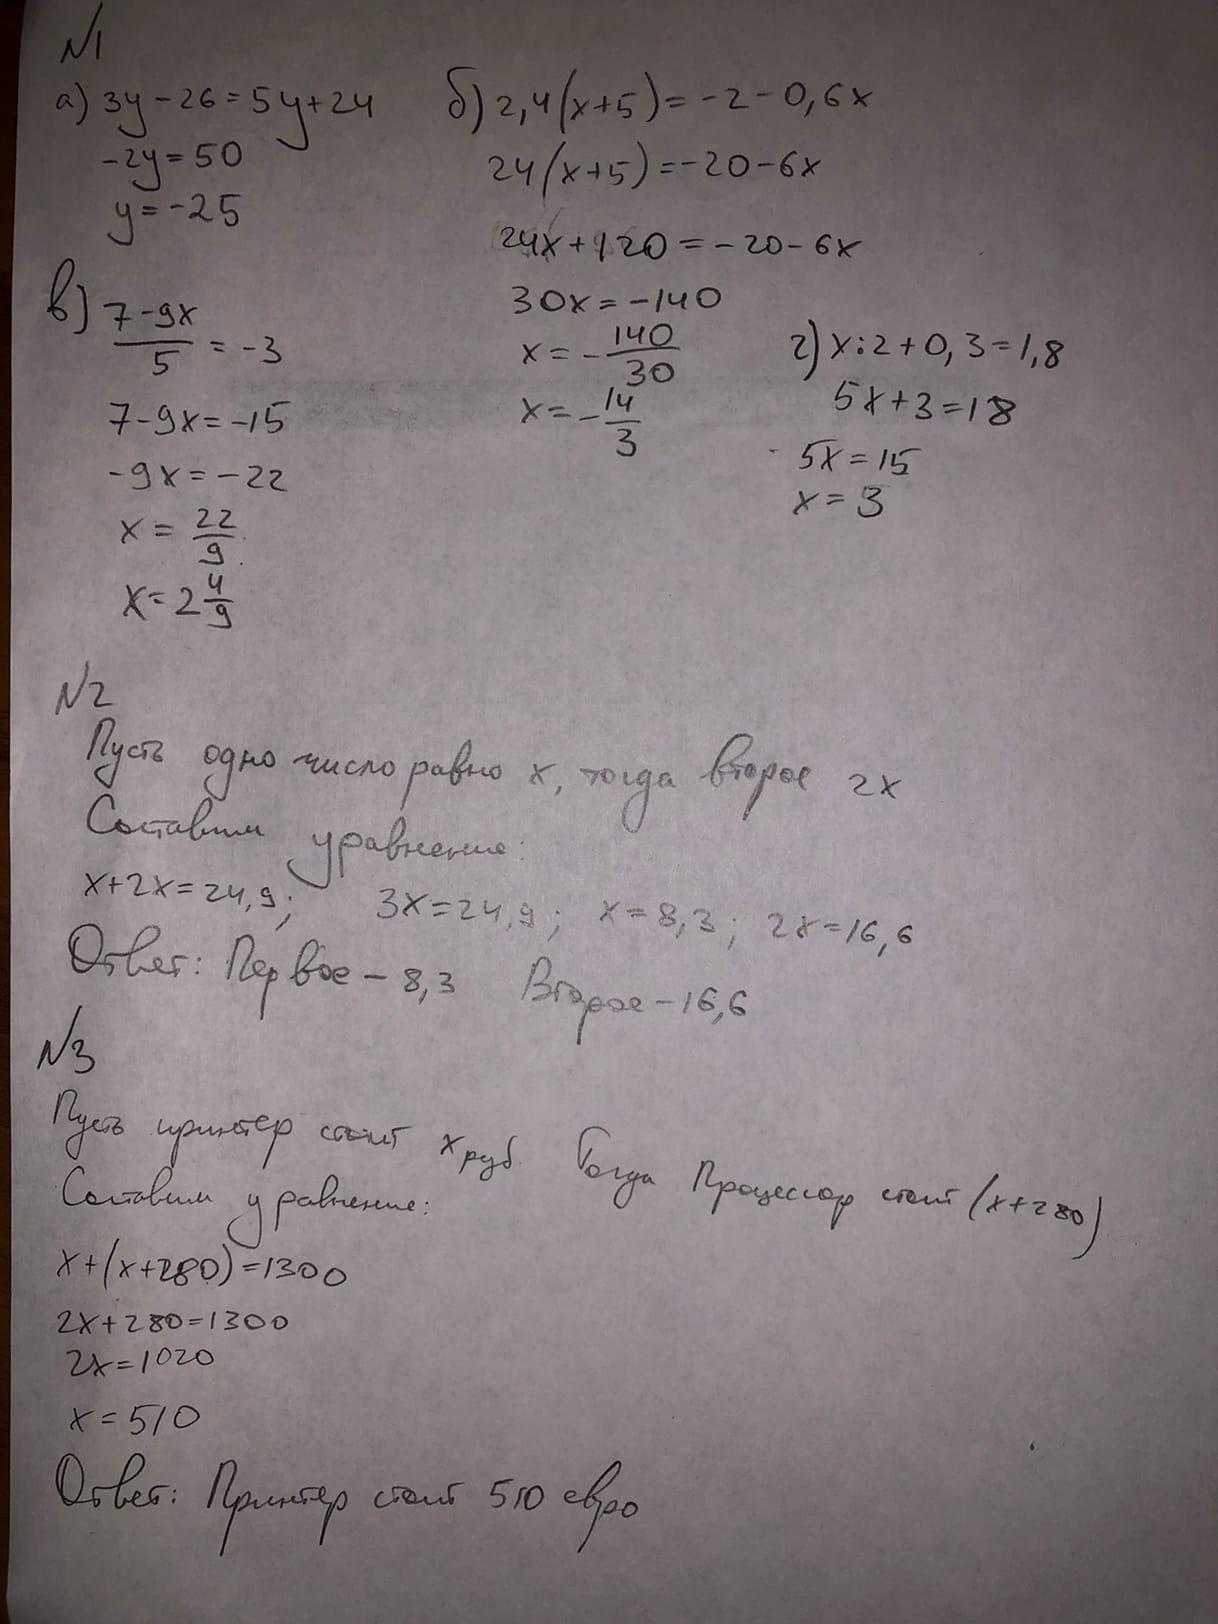 №1
а) 3y-26=5y+24
-2y=50
y=-25
б) 2,4(x+5)=-2-0,6x
24(x+5)=-20-6x
24x+120=-20-6x
30x=-140
x=-140/30
x=-14/3
в) (7-9x)/5=-3
7-9x=-15
-9x=-22
x=22/9
x=2 4/9
г) x:2+0,3=1,8
5x+3=18
5x=15
x=3
№2
Пусть одно число равно x, тогда второе 2x
Составим уравнение:
x+2x=24,9; 3x=24,9; x=8,3; 2x=16,6
Ответ: Первое-8,3 Второе-16,6
№3
Пусть принтер стоит x руб. Тогда Процессор стоит (x+280)
Составим уравнение:
x+(x+280)=1300
2x+280=1300
2x=1020
x=510
Ответ: Принтер стоит 510 евро